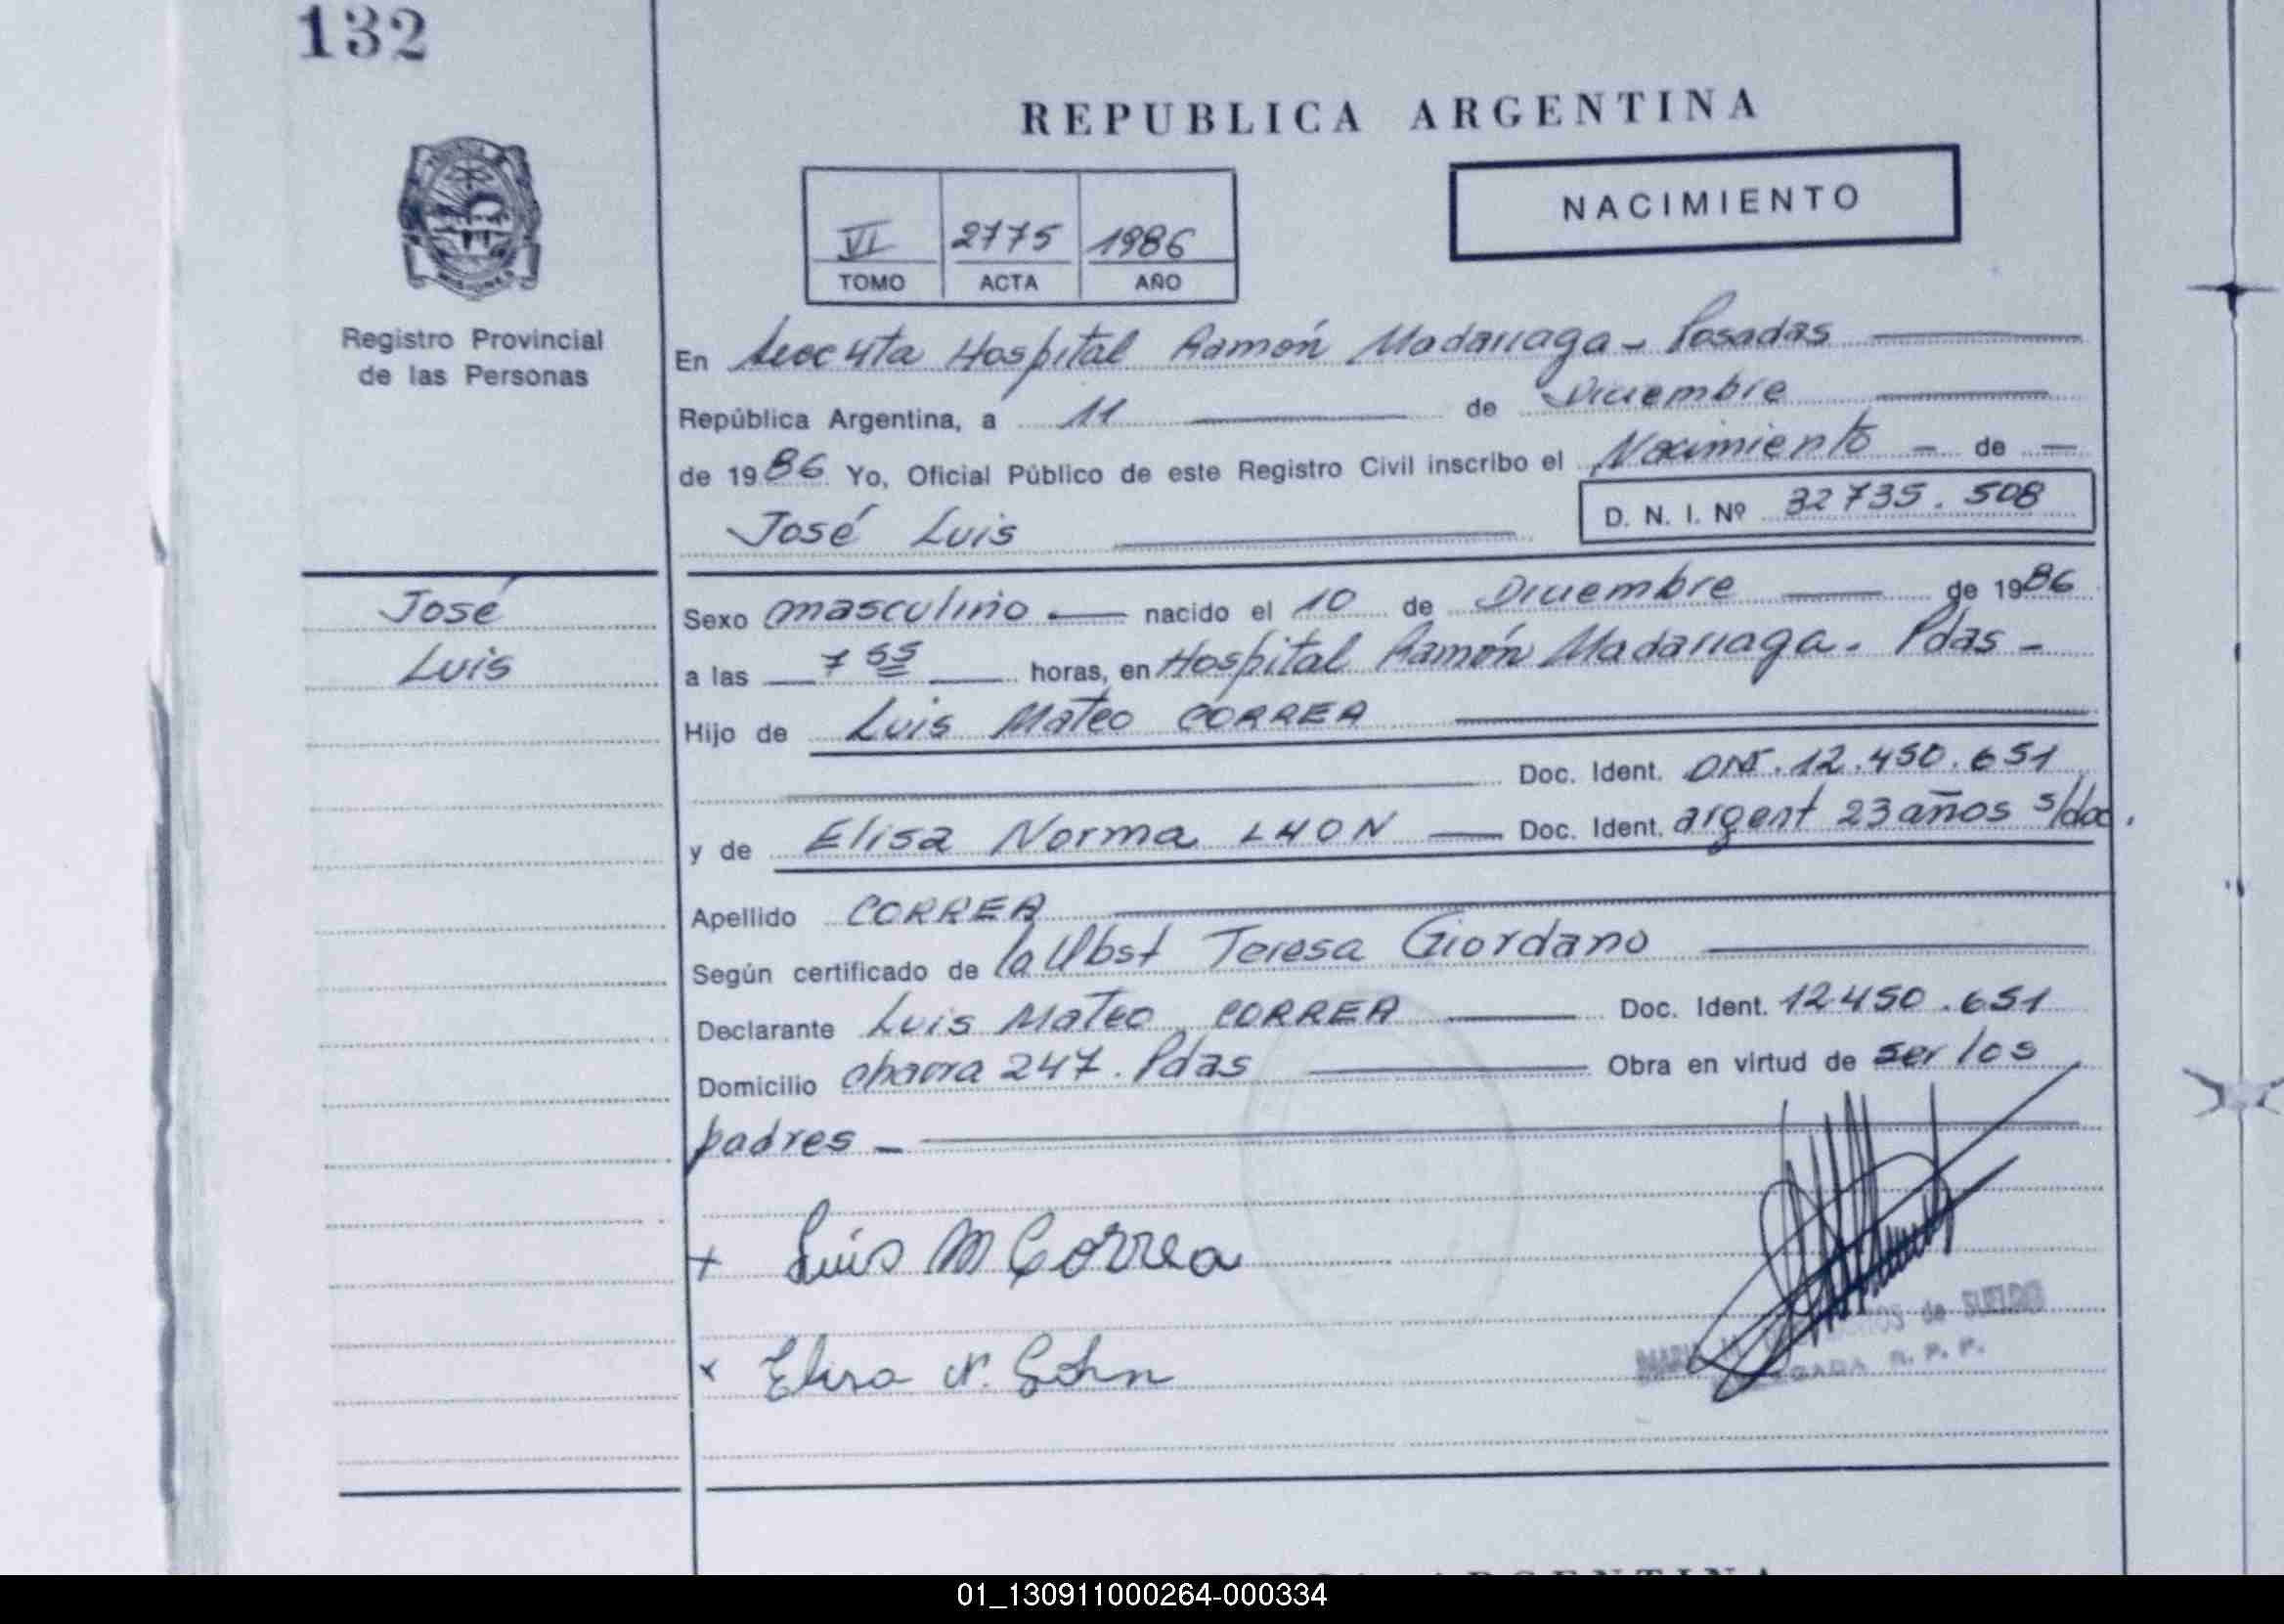 132
REPUBLICA ARGENTINA
NACIMIENTO
VI 2775 1986
TOMO ACTA AÑO
Registro Provincial
de las Personas
En Hospital Ramón Madariaga - Posadas
República Argentina, a 11 de Diciembre
de 1986 Yo, Oficial Público de este Registro Civil inscribo el Nacimiento - de -
José Luis
D. N. I. Nº 32735.508
José
Luis
Sexo masculino nacido el 10 de Diciembre de 1986
a las 7 55 horas, en Hospital Ramón Madariaga. Pdas -
Hijo de Luis Mateo CORREA
Doc. Ident. DNI. 12.450.651
y de Elisa Norma LHON Doc. Ident. argent 23 años s/doc.
Apellido CORREA
Según certificado de la Obst Teresa Giordano
Declarante Luis Mateo CORREA Doc. Ident. 12450.651
Domicilio 247. Pdas Obra en virtud de ser los
padres -
+ Luis M Correa
de SUELDO
x Elisa N.
R. P. P.
01_130911000264-000334